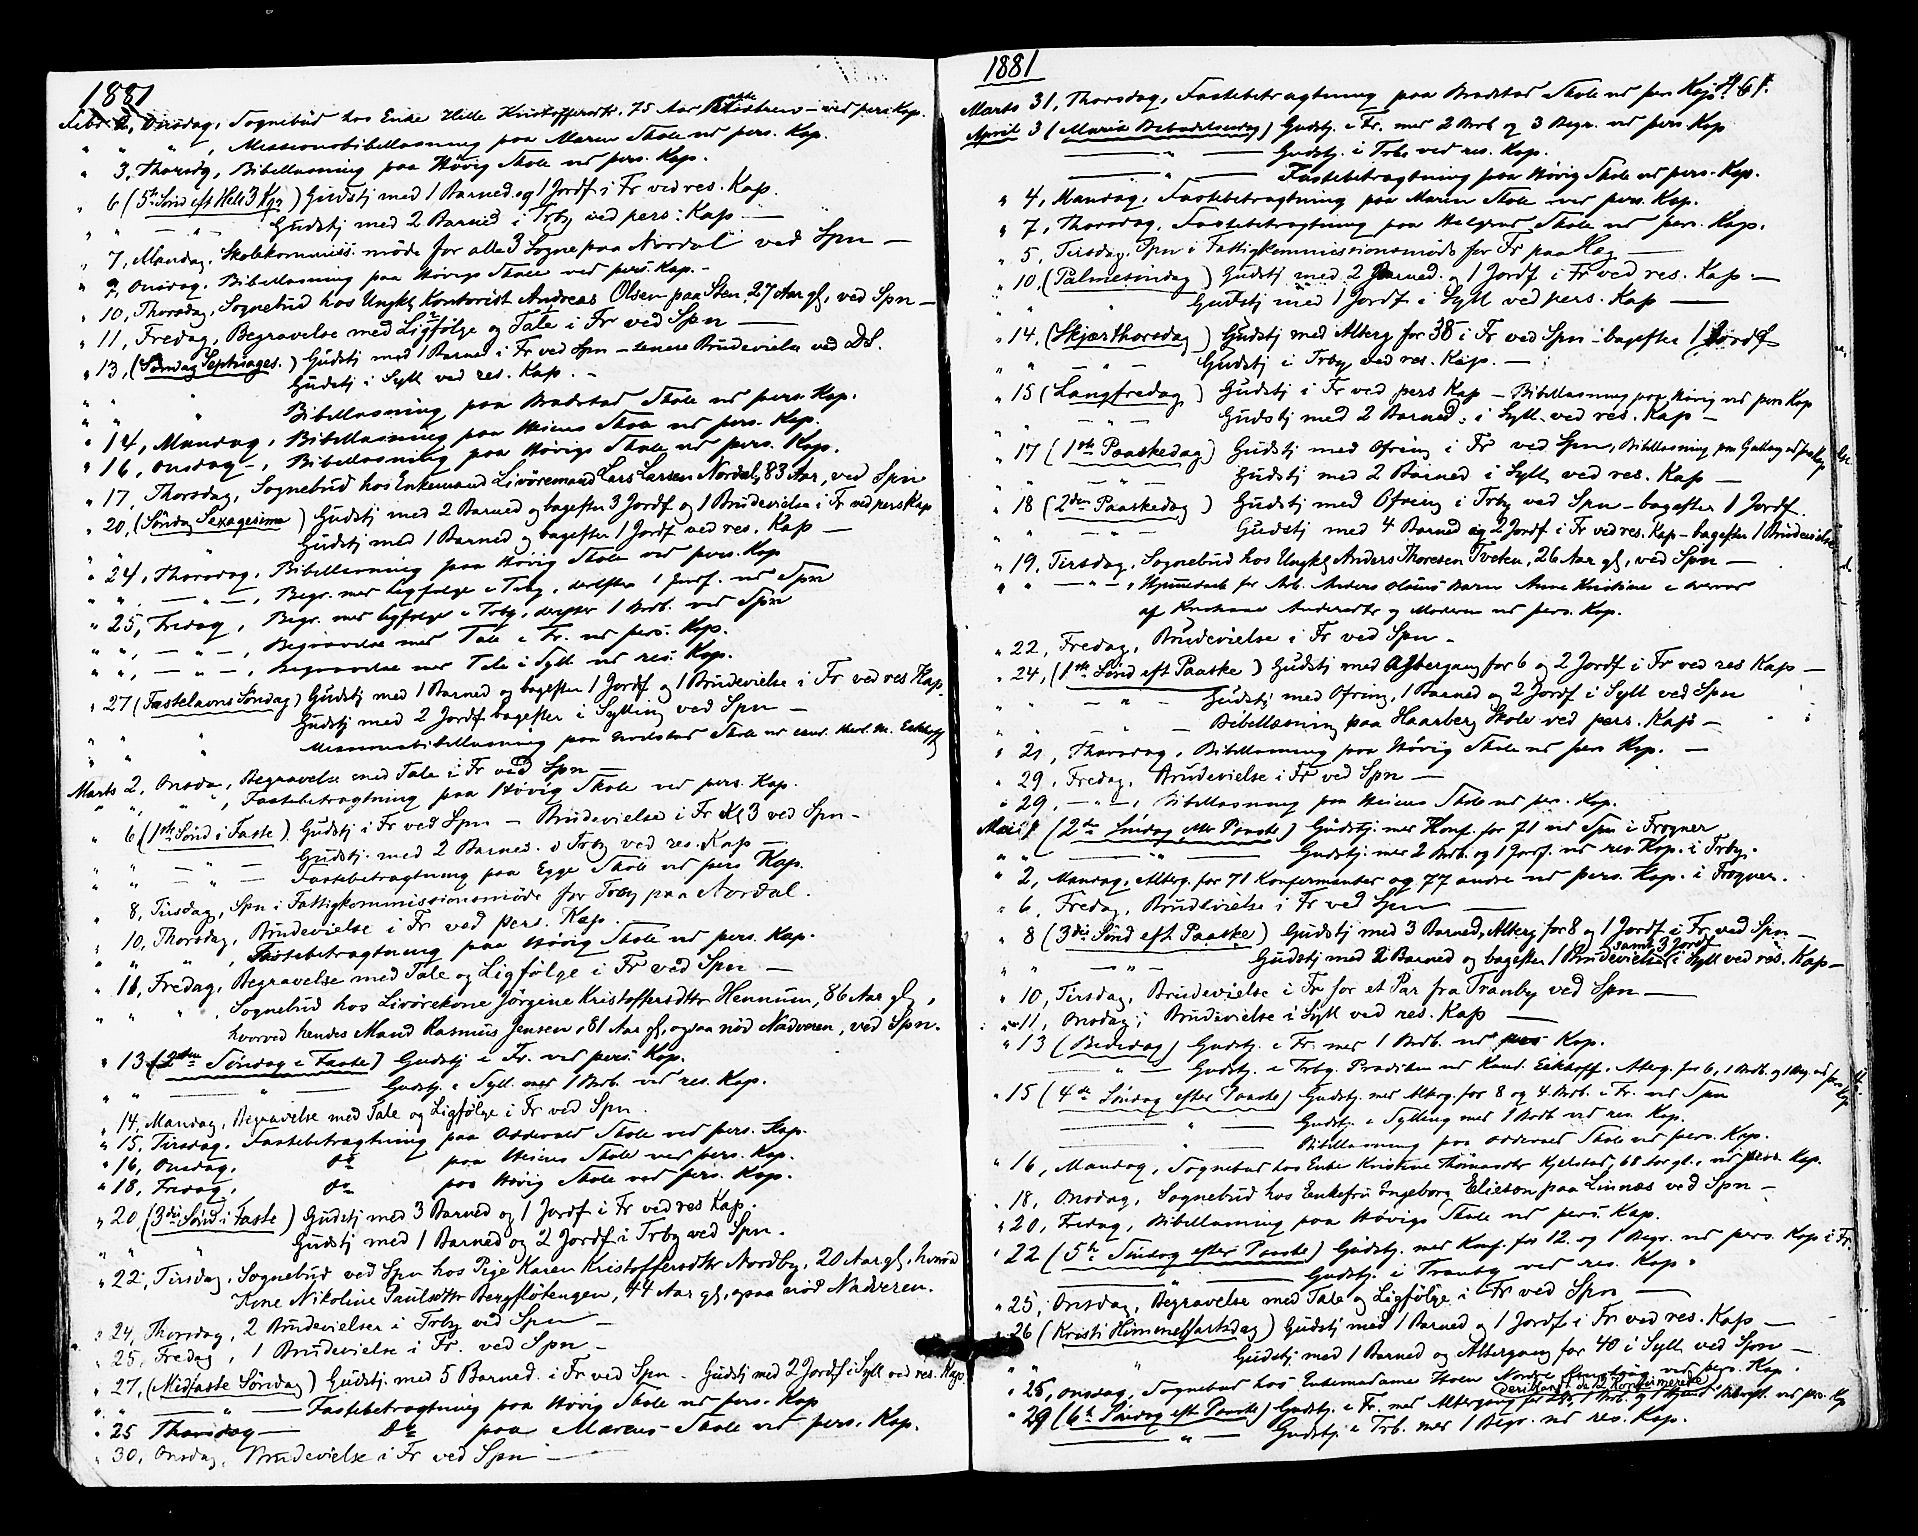 1881
Febr 2, Onsdag, Sognebud hos Enke Helle Kristoffersdtr. 75 Aar ved pers Kap.
" " " , Missionsbibellæsning paa Maren Skole ved pers. Kap.
" 3, Thorsdg, Bibellæsning paa Høvig Skole ved pers. Kap.
" 6 (5te Sønd eft Hell 3 Kgr) Gudstj med 1 Barned. og 1 Jordf. i Fr ved res. Kap.
" " — " — Gudstj med 2 Barned i Trby ved pers: Kap —
" 7, Mandag, Skolekommiss. møde for alle 3 Sogne paa Nordal ved Spn —
" 9, Onsdag. Bibellæsning paa Høvigs Skole ved pers. Kap. -
" 10, Thorsdag, Sognebud hos Ungkl Kontorist Andreas Olsen paa Sten, 27 Aar gl, ved Spn —
" 11, Fredag, Begravelse med Ligfølge og Tale i Fr ved Spn —
" 13, (Søndag Septuages.) Gudstj med 1 Barned i Fr ved Spn - senere Brudevielse ved DS.
Gudstj i Syll ved res. Kap. -
" " " Bibellæsning paa Bradstad Skole ved pers. Kap.
" 14, Mandag, Bibellæsning paa Meieres Skole ved pers. Kap.
" 16, Onsdag -, Bibellæsning paa Høvigs Skole ved pers. Kap.
" 17, Thorsdag, Sognebud hos Enkemand Livøremand Lars Larsen Nordal, 83 Aar, ved Spn
" 20, (Søndag Sexagesima) Gudstj med 2 Barned og bagefter 3 Jordf og 1 Brudevielse i Fr ved pers Kap
" " Gudstj med 1 Barned og bagefter 1 Jordf ved res. Kap —
" 24, Thorsdag, Bibellæsning paa Høvig Skole ved pers. Kap
" " — " —, Begr. med Ligfølge i Trby, derefter 1 Jordf. ved Spn
" 25, Fredag, Begr. med Ligfølge i Trby, derefter 1 Brdv. ved Spn
" ", — " —, Begravelse med Tale i Fr. ved pers. Kap.
" ", — " —, Begravelse med Tale i Syll ved res. Kap.
" 27 (Fastelavns Søndag) Gudstj med 1 Barned og bagefter 1 Jordf og 1 Brudevielse i Fr ved res Kap.
" " Gudstj med 2 Jordf bagefter i Sylling ved Spn —
" " " Missionsbibellæsning paa Skole ved Eckhoff
Marts 2, Onsda, Begravelse med Tale i Fr ved Spn —
" " " ", Fastebetragtning paa Høvig Skole ved pers. Kap.
" 6 (1ste Sønd i Faste) Gudstj i Fr ved Spn — Brudevielse i Fr Kl 3 ved Spn -
" " — " — Gudstj. med 2 Barned. i Trby ved res. Kap —
" " — " — Fastebetragtning paa Egge Skole ved pers Kap.
" 8, Tirsdag, Spn i Fattigkommissionsmøde for Trby paa Nordal.
" 10, Thorsdag, Brudevielse i Fr. ved pers. Kap.
" " " , Fastebetragtning paa Høvig Skole ved pers. Kap.
" 11, Fredag, Begravelse med Tale og Ligfølge i Fr ved Spn —
" " " , Sognebud hos Livørekone Jörgine Kristoffersdttr Hennum, 86 Aar gl,
hvorved hendes Mand Rasmus Jensen, 81 Aar gl, ogsaa nød Nadveren, ved Spn.
" 13 (2den Søndag i Faste) Gudstj i Fr. ved pers. Kap.
" " — " — Gudstj. i Syll. med 1 Brdb. ved res. Kap.
" 14, Mandag, Begravelse med Tale og Ligfølge i Fr ved Spn.
" 15, Tirsdag, Fastebetragtning paa Oddevald Skole ved pers. Kap.
" 16, Onsdag, do paa Meieres Skole ved pers. Kap.
" 18, Fredag, do paa Høvig Skole ved pers. Kap.
" 20, (3die Sønd i Faste) Gudstj med 3 Barned og 1 Jordf i Fr ved res Kap.
" " " Gudstj med 1 Barned og 2 Jordf i Trby ved Spn.
" 22, Tirsdag, Sognebud ved Spn hos Pige Karen Kristoffersdttr Nordby, 20 Aar gl, hvorved
Kone Nikoline Paulsdttr Bergfløtengen, 44 Aar gl, ogsaa nød Nadveren.
" 24, Thorsdag, 2 Brudevielser i Trby ved Spn —
" 25, Fredag, 1 Brudevielse i Fr. ved Spn —
" 27, (Midfaste Søndag) Gudstj. med 5 Barned. i Fr ved Spn - Gudstj med 2 Jordf i Syll ved res. Kap.
" " — " — Fastebetragtning paa Høvig Skole ved pers. Kap
" 25 Thorsdag — do paa Marens Skole ved pers. Kap.
" 30, Onsdag, Brudevielse i Fr ved Spn —
1881
Marts 31, Thorsdag, Fastebetragtning paa Bradstad Skole ved pers Kap.
April 3 (Mariæ Bebudelsesdag) Gudstj. i Fr. med 2 Brdb og 3 Begr. ved pers Kap
— " — Gudstj. i Trb. ved res. Kap.
— " — Fastebetragtning paa Høvig Skole ved pers. Kap.
" 4, Mandag, Fastebetragtning paa Maren Skole ved pers. Kap.
" 7, Thorsdag, Fastebetragtning paa Skole ved pers. Kap.
" 5, Tirsdag, Spn i Fattigkommissionsmøde for Fr paa Hæg —
" 10, (Palmesøndag) Gudstj med 2 Barned. og 1 Jordf. i Fr ved res. Kap. —
" " " Gudstj med 1 Jordf i Syll ved pers. Kap —
" 14, (Skjærthorsdag) Gudstj med Alterg for 38 i Fr ved Spn - bagefter 1 Jordf
" " — " — Gudstj i Trby ved res. Kap. —
" 15 (Langfredag) Gudstj i Fr ved pers Kap — Bibellæsning paa Høvig ved pers Kap
" " — " — Gudstj med 2 Barned. i Syll ved res. Kap —
" 17 (1ste Paaskedag) Gudstj med Ofring i Fr ved Spn, Bibellæsning paa ved pers Kap
" — " — Gudstj med 2 Barned i Syll ved res. Kap —
" 18 (2den Paaskedag) Gudstj med Ofring i Trby ved Spn - bagefter 1 Jordf.
" " — " — Gudstj med 4 Barned og 2 Jordf i Fr ved res. Kap - bagefter 1 Brudevielse
" 19, Tirsdag, Sognebud hos Ungkl Anders Thoresen Tveten, 26 Aar gl, ved Spn —
" " — " —, Hjemmedaab for Arb. Anders Olsens Barn Anne Kristine
af Moderen ved pers. Kap.
" 22, Fredag, Brudevielse i Fr ved Spn -
" 24, (1ste Sønd eft Paaske) Gudstj med Altergang for 6 og 2 Jordf i Fr ved res Kap —
" " — " — Gudstj med Ofring, 1 Barned og 2 Jordf i Syll ved Spn
" " — " — Bibellæsning paa Haarberg Skole ved pers. Kap —
" 21, Thorsdag, Bibellæsning paa Høvig Skole ved pers Kap. —
" 29, Fredag, Brudevielse i Fr ved Spn —
" 29, — " —, Bibellæsning paa Meieres Skole ved pers. Kap.
Mai 1 (2den Søndag efter Paaske) Gudstj. med Konf. for 71 ved Spn i Frogner
" " — " — Gudstj. med 2 Brdb. og 1 Jordf. ved res. Kap. i Trby.
" 2, Mandag, Alterg. for 71 Konfirmanter og 77 andre ved pers. Kap. i Frogner.
" 6, Fredag, Brudevielse i Fr ved Spn —
" 8 (3die Sønd eft Paaske) Gudstj med 3 Barned, Alterg for 8 og 1 Jordf i Fr ved Spn —
" " — " — Gudstj med 2 Barned og bagefter 1 Brudevielse samt 3 Jordf i Syll ved res. Kap —
" 10, Tirsdag, Brudevielse i Fr for et Par fra Tranby ved Spn —
" 11, Onsdag, Brudevielse i Syll ved res. Kap —
" 13 (Bededag) Gudstj. i Fr. med 1 Brdb. ved pers Kap.
— " — Gudstj. i Trby. Prædiken ved Kand. Eckhoff. Alterg. for 6, 1 Brdb. og 1 Begr. ved pers Kap
" 15 (4de Søndag efter Paaske) Gudstj. med Alterg. for 8 og 4 Brdb. i Fr. ved Spn
— " — Gudstj. i Sylling med 1 Brdb ved res. Kap.
— " — Bibellæsning paa Oddevald Skole ved pers. Kap.
" 16, Mandag, Sognebud hos Enke Kristine Thomasdtr Kjelstad, 68 Aar gl., ved pers. Kap.
" 18, Onsdag, Sognebud hos Enkefru Ingeborg Elieson paa Linnæs ved Spn —
" 20, Fredag, Bibellæsning paa Høvigs Skole ved pers. Kap.
" 22 (5te Søndag efter Paaske) Gudstj. med Konf. for 12 og 1 Begr. ved pers. Kap i Fr.
— " — Gudstj. i Tranby ved res. Kap.
" 25, Onsdag, Begravelse med Tale og Ligfølge i Fr ved Spn —
" 26 (Kristi Himmelfartsdag) Gudstj med 1 Barned og 1 Jordf i Fr ved res. Kap —
" " Gudstj med 1 Barned og Altergang for 40 i Syll ved Spn —
" 25, Onsdag, Sognebud hos Enkemadame Nordre ved pers. Kap.
" 29 (6te Søndag eft Paaske) Gudstj. i Fr. med Altergang for (deriblandt de 12 Konfirmerede) ved pers. Kap
— " — Gudstj. i Trb. med 1 Begr. ved res. Kap.